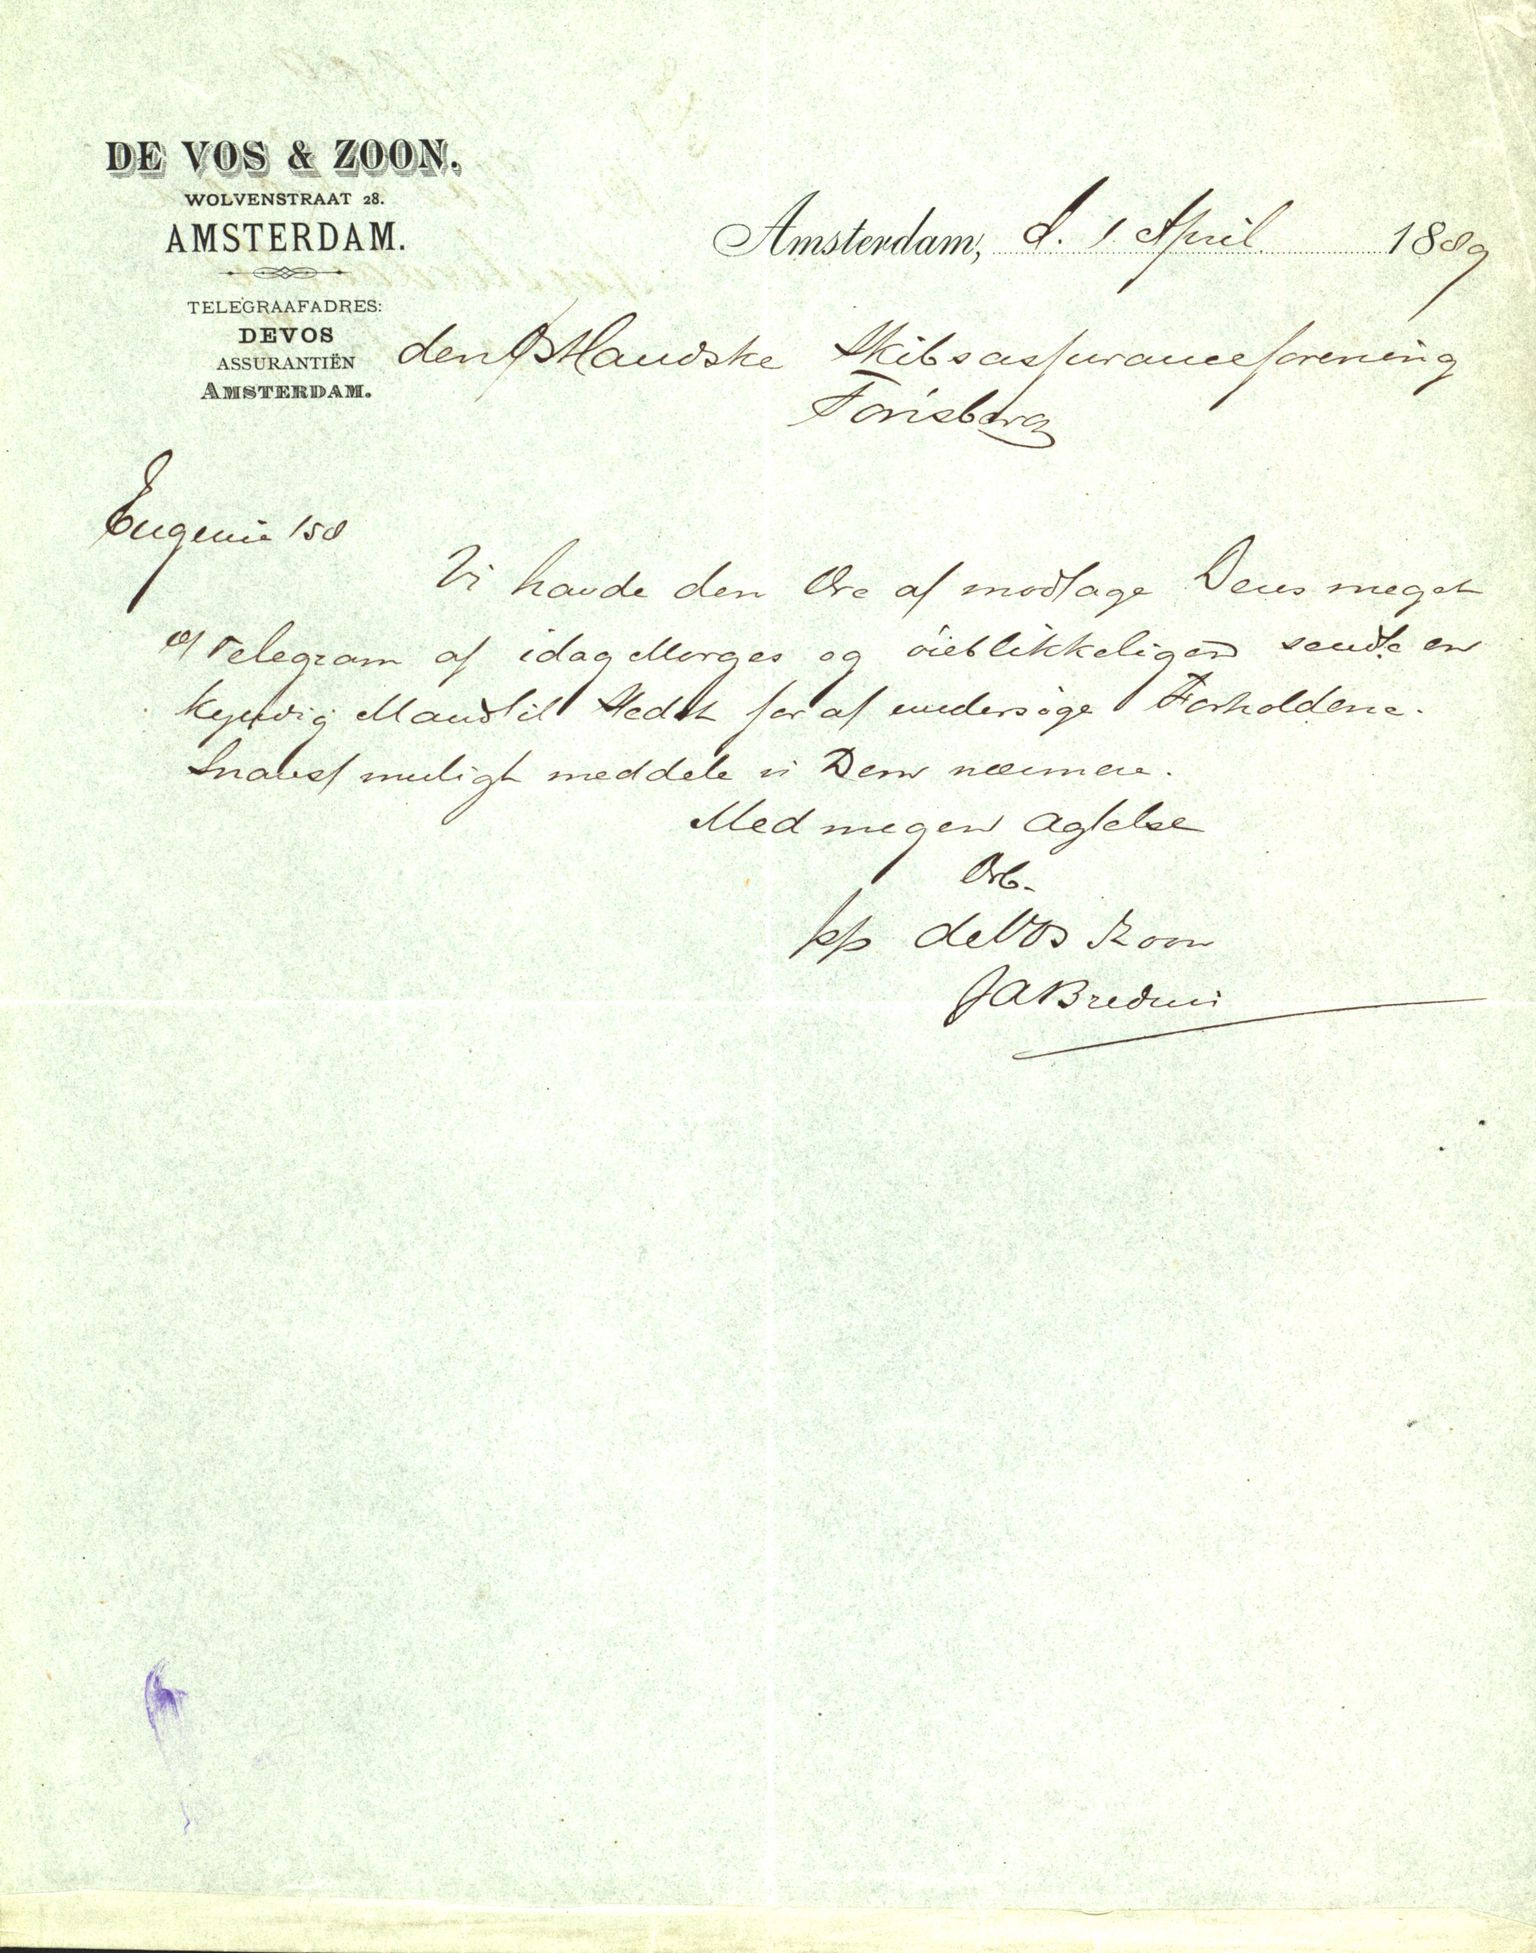 DE VOS & ZOON.
WOLVENSTRAAT 28.
AMSTERDAM.
TELEGRAAFADRES:
DEVOS
ASSURANTIËN
AMSTERDAM.
Amsterdam, d. 1 April 1889
den Østlandske Skibsassuranceforening
Tønsberg
Eugenie 158
Vi havde den Ære at modtage Deres meget
Telegram af idag Morges og öieblikkeligen sendte en
kyndig Mand til Stedet for at undersöge Forholdene.
Snarest muligt meddele vi Dem nærmere.
Med megen Agtelse
Ærb.
pp de Vos & Zoon
JA Bredius